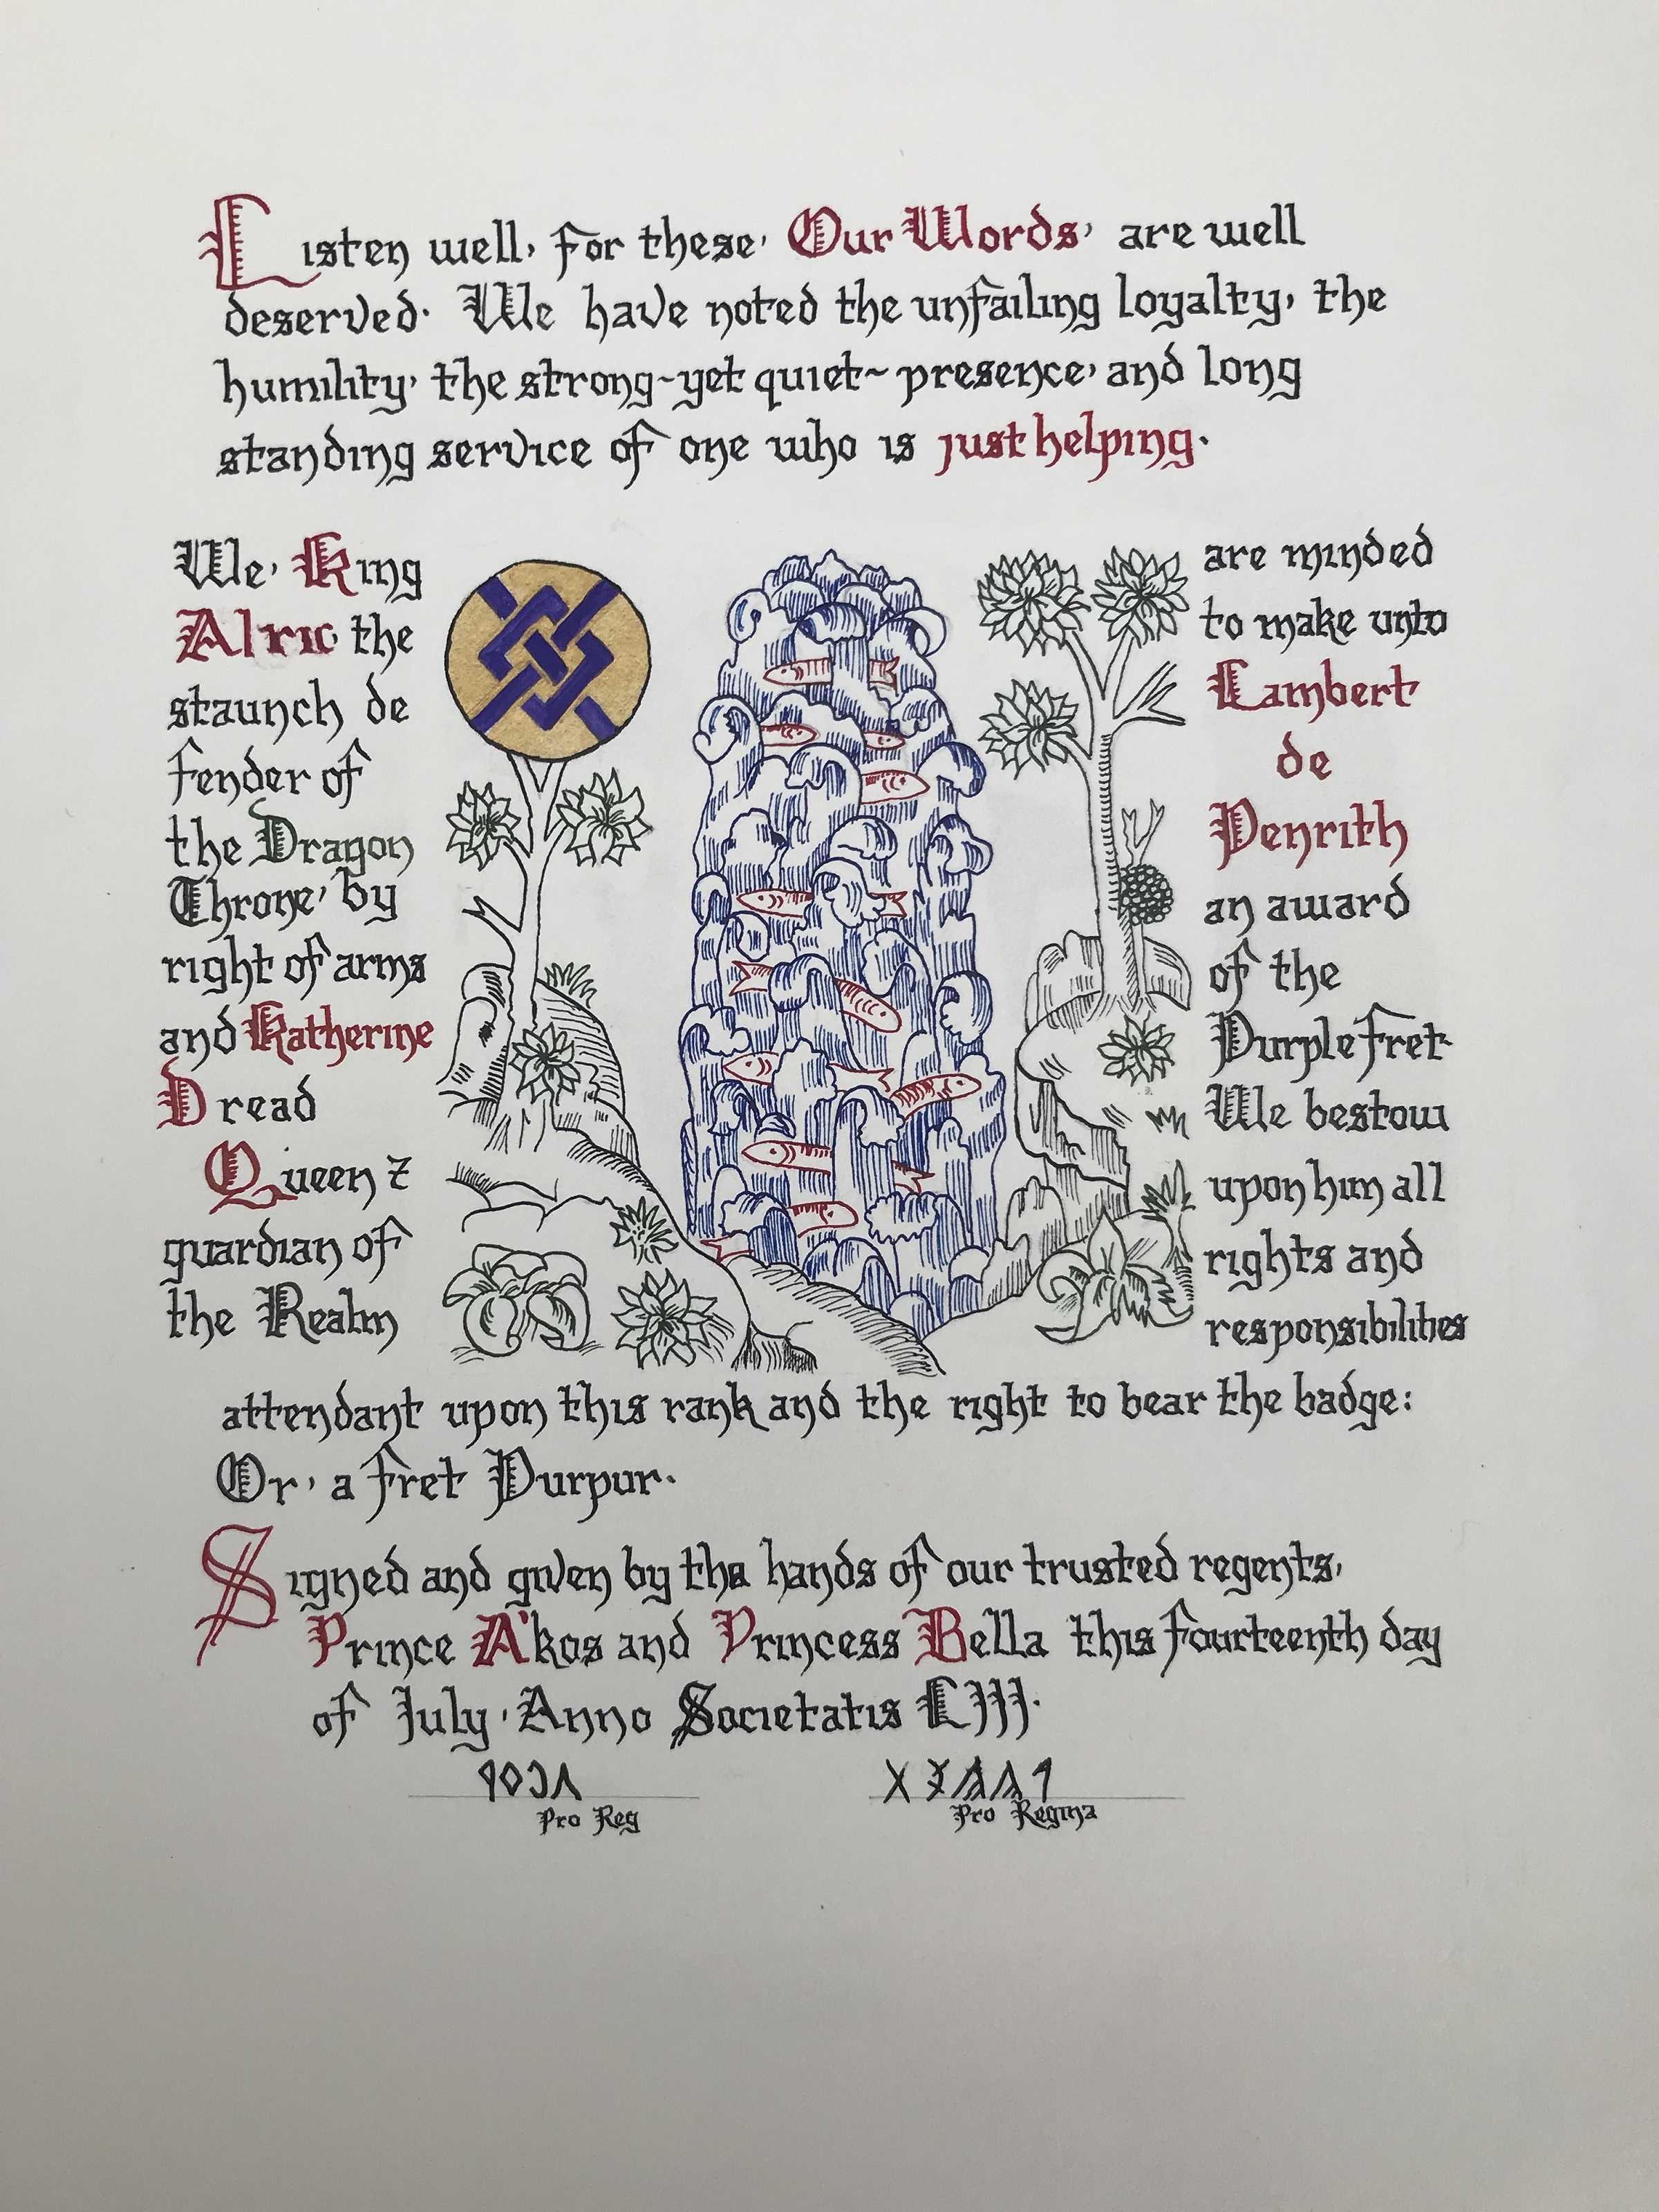 Listen well, for these, Our Words, are well
deserved. We have noted the unfailing loyalty, the
humility, the strong~yet quiet~ presence, and long
standing service of one who is just helping.
We, King
Alric the
staunch de
fender of
the Dragon
Throne, by
right of arms
and Katherine
Dread
Queen &
guardian of
the Realm
are minded
to make unto
Lambert
de
Penrith
an award
of the
Purple fret.
We bestow
upon him all
rights and
responsibilities
attendant upon this rank and the right to bear the badge:
Or, a fret Purpur.
Signed and given by the hands of our trusted regents,
Prince A'kos and Princess Bella this fourteenth day
of July, Anno Societatis LIII.
Pro Reg
Pro Regina